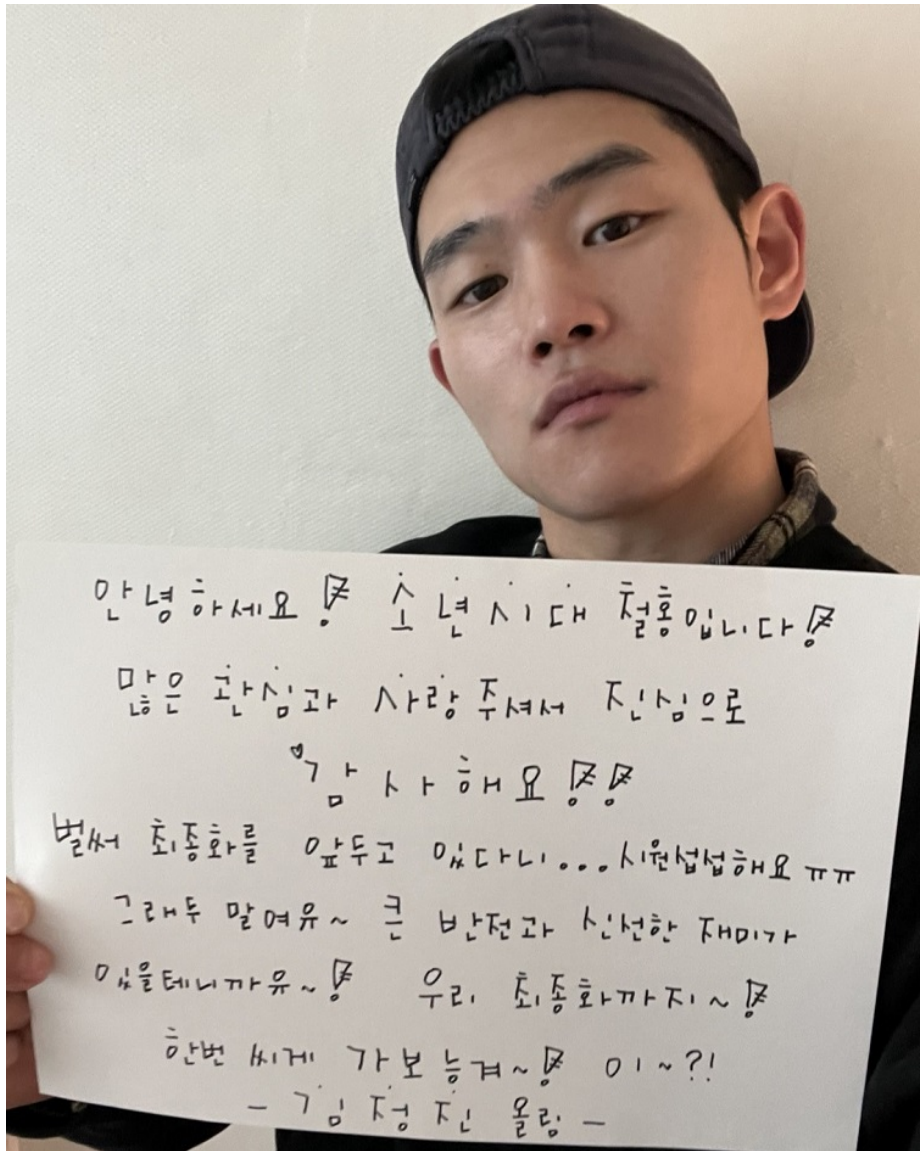 안녕하세요! 소년시대 철홍입니다!
많은 관심과 사랑 주셔서 진심으로
감사해요!!
벌써 최종화를 앞두고 있다니...시원섭섭해요 ㅠㅠ
그래두 말여유~ 큰 반전과 신선한 재미가
있을테니까유~! 우리 최종화까지~!
한번 씨게 가보능겨~! 이~?!
- 김정진 올림 -